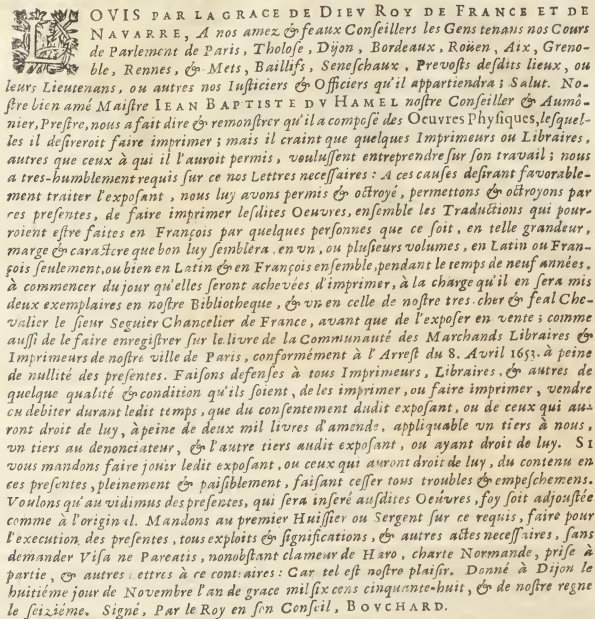 LOVIS PAR LA GRACE DE DIEV ROY DE FRANCE ET DE
NAVARRE, A nos amez & feaux Conſeillers les Gens tenans nos Cours
de Parlement de Paris, Tholoſe, Dijon, Bordeaux, Roüen, Aix, Greno-
ble, Rennes, & Mets, Baillifs, Seneſchaux, Prevoſts deſdits lieux, ou
leurs Lieutenans, ou autres nos Iuſticiers & Officiers qu'il appartiendra; Salut. No-
ſtre bien amé Maiſtre IEAN BAPTISTE DV HAMEL noſtre Conſeiller & Aumô-
nier, Preſtre, nous a fait dire & remonſtrer qu'il a compoſé des Oeuvres Phyſiques, leſquel-
les il deſireroit faire imprimer; mais il craint que quelques Imprimeurs ou Libraires,
autres que ceux à qui il l'auroit permis, vouluſſent entreprendre ſur ſon travail; nous
a tres-humblement requis ſur ce nos Lettres neceſſaires: A ces cauſes deſirant favorable-
ment traiter l'expoſant, nous luy avons permis & octroyé, permettons & octroyons par
ces preſentes, de faire imprimer leſdites Oeuvres, enſemble les Traductions qui pour-
roient eſtre faites en François par quelques perſonnes que ce ſoit, en telle grandeur,
marge & caractere que bon luy ſemblera, en vn, ou pluſieurs volumes, en Latin ou Fran-
çois ſeulement, ou bien en Latin & en François enſemble, pendant le temps de neuf années,
à commencer du jour qu'elles ſeront achevées d'imprimer, à la charge qu'il en ſera mis
deux exemplaires en noſtre Bibliotheque, & vn en celle de noſtre tres-cher & feal Che-
valier le ſieur Seguier Chancelier de France, avant que de l'expoſer en vente; comme
auſſi de le faire enregiſtrer ſur le livre de la Communauté des Marchands Libraires &
Imprimeurs de noſtre ville de Paris, conformément à l'Arreſt du 8. Avril 1653. à peine
de nullité des preſentes. Faiſons defenſes à tous Imprimeurs, Libraires, & autres de
quelque qualité & condition qu'ils ſoient, de les imprimer, ou faire imprimer, vendre
ou debiter durant ledit temps, que du conſentement dudit expoſant, ou de ceux qui au-
ront droit de luy, à peine de deux mil livres d'amende, appliquable vn tiers à nous,
vn tiers au denonciateur, & l'autre tiers audit expoſant, ou ayant droit de luy. SI
vous mandons faire jouir ledit expoſant, ou ceux qui auront droit de luy, du contenu en
ces preſentes, pleinement & paiſiblement, faiſant ceſſer tous troubles & empeſchemens.
Voulons qu'au vidimus des preſentes, qui ſera inſeré auſdites Oeuvres, foy ſoit adjouſtée
comme à l'original. Mandons au premier Huiſſier ou Sergent ſur ce requis, faire pour
l'execution des preſentes, tous exploits & ſignifications, & autres actes neceſſaires, ſans
demander Viſa ne Pareatis, nonobſtant clameur de Haro, charte Normande, priſe à
partie, & autres lettres à ce contraires: Car tel eſt noſtre plaiſir. Donné à Dijon le
huitiéme jour de Novembre l'an de grace mil ſix cens cinquante-huit, & de noſtre regne
le ſeiziéme. Signé, Par le Roy en ſon Conſeil, BOVCHARD.